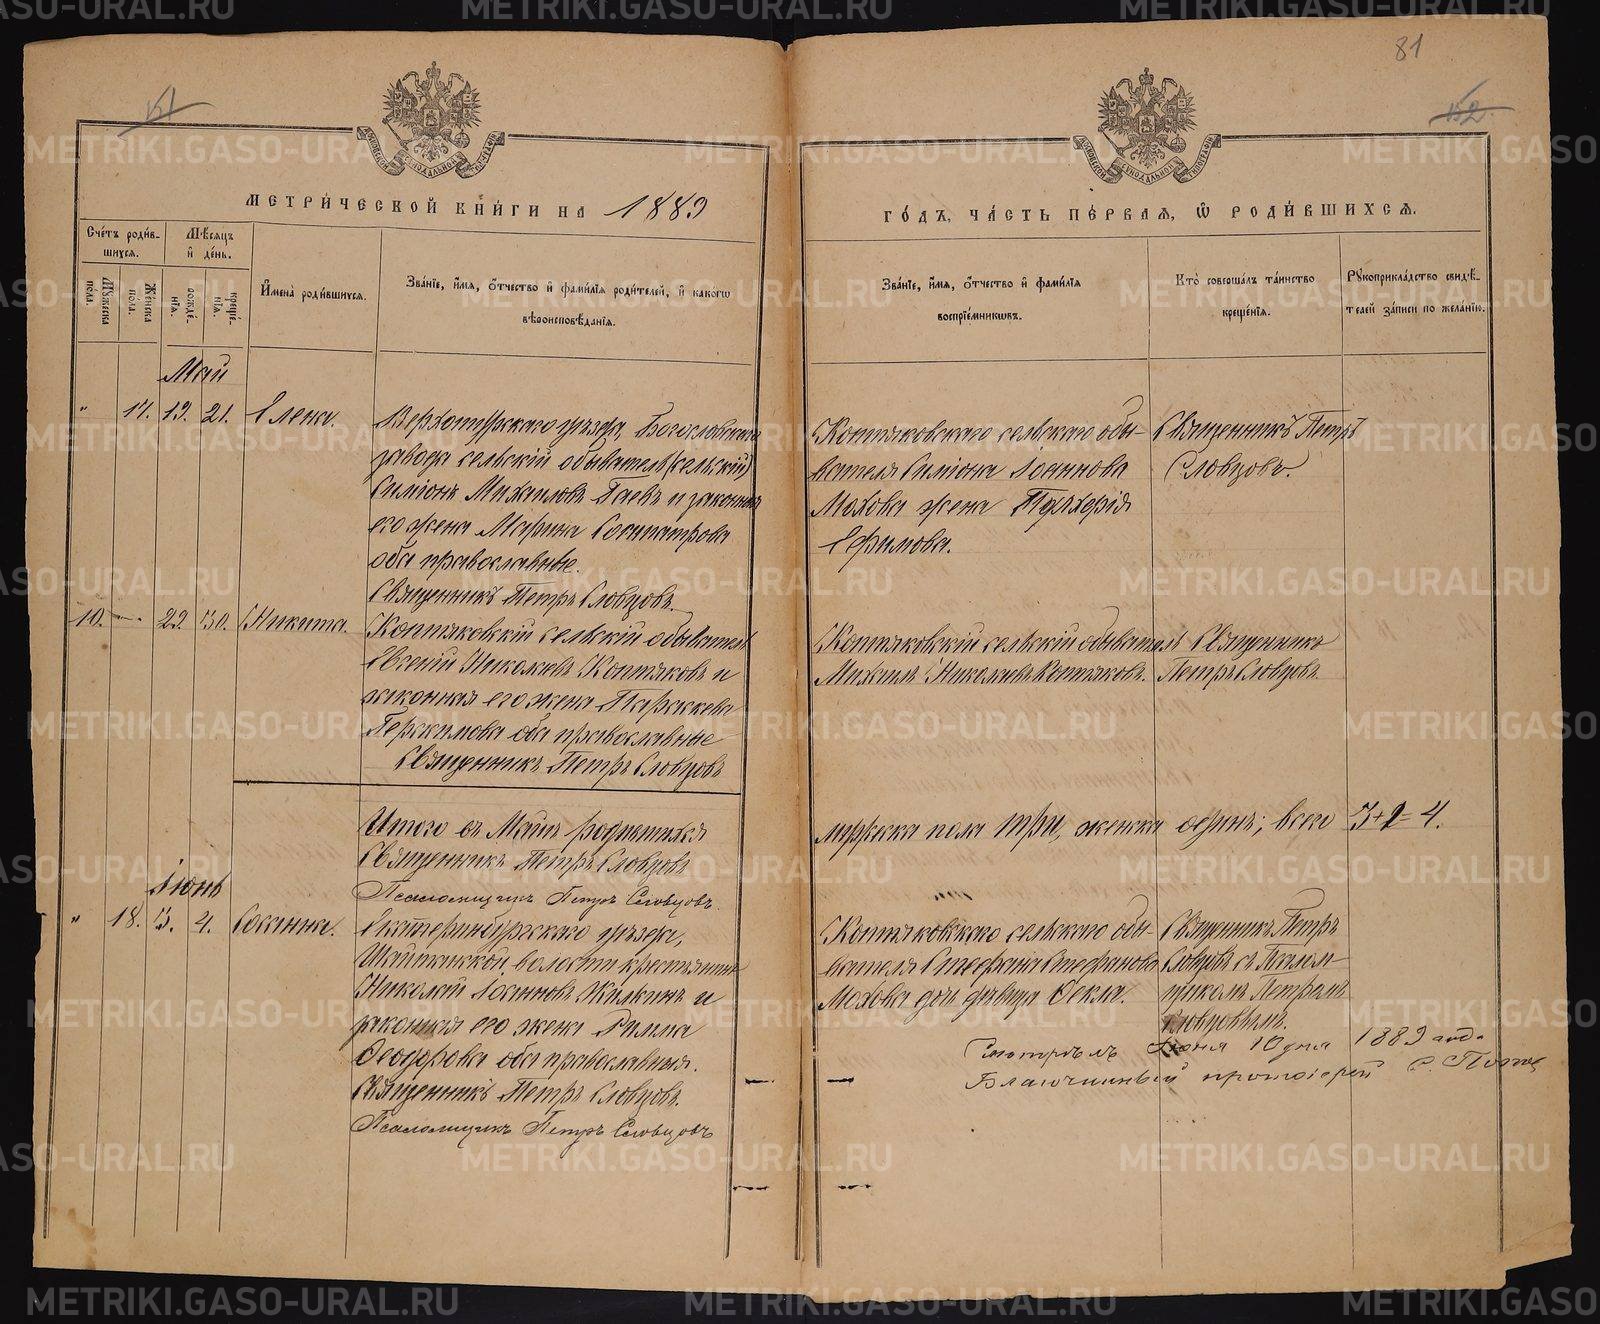 81
151
152.
МОСКОВСКОЙ СѴНОДАЛЬНОЙ ТИПОГРАФІИ
МОСКОВСКОЙ СѴНОДАЛЬНОЙ ТИПОГРАФІИ
МЕТРИЧЕСКОЙ КНИГИ НА 1889
ГОДЪ, ЧАСТЬ ПЕРВАЯ, Ѿ РОДИВШИХСЯ.
Счетъ родив-
шихся.
Мужеска
пола.
Женска
пола.
Мѣсяцъ
и день.
рожде-
нія.
креще-
нія.
Имена родившихся.
Званіе, имя, отчество и фамилія родителей, и какогѡ
вѣроисповѣданія.
Званіе, имя, отчество и фамилія
воспріемникѡвъ.
Кто совершалъ таинство
крещенія.
Рукоприкладство свидѣ-
телей записи по желанію.
Май
" 17. 19. 21. Елена.
Верхотурскаго уѣзда, Богословскаго
завода сельскій обыватель (сельскій)
Симіонъ Михаиловъ Гаевъ и законная
его жена Марина Сосипатрова
оба православные.
Священникъ Петръ Словцовъ.
Коптяковскаго сельскаго обы-
вателя Симіона Іоаннова
Махова жена Пульхерія
Ефимова.
Священникъ Петръ
Словцовъ.
10. — 29. 30. Никита.
Коптяковскій сельскій обыватель
Евгеній Николаевъ Коптяковъ и
законная его жена Параскева
Герасимова оба православные
Священникъ Петръ Словцовъ
Коптяковскій сельскій обыватель
Михаилъ Николаевъ Коптяковъ.
Священникъ
Петръ Словцовъ
Итого въ Маѣ родившихся
мужеска пола три, женска одинъ; всего 3+1=4.
Священникъ Петръ Словцовъ
Псаломщикъ Петръ Словцовъ.
Іюнь
" 18. 3. 4. Сосанна.
Екатеринбургскаго уѣзда,
Шайтанской волости крестьянинъ
Николай Іоанновъ Жилкинъ и
законная его жена Римма
Ѳеодорова оба православныя.
Священникъ Петръ Словцовъ.
Псаломщикъ Петръ Словцовъ
Коптяковскаго сельскаго обы-
вателя Стефана Стефанова
Махова дочь дѣвица Ѳекла.
Священникъ Петръ
Словцовъ съ Псалом-
щикомъ Петромъ
Словцовымъ.
Смотрѣлъ Іюня 10 дня 1889 года
Благочинный протоіерей С. Попов